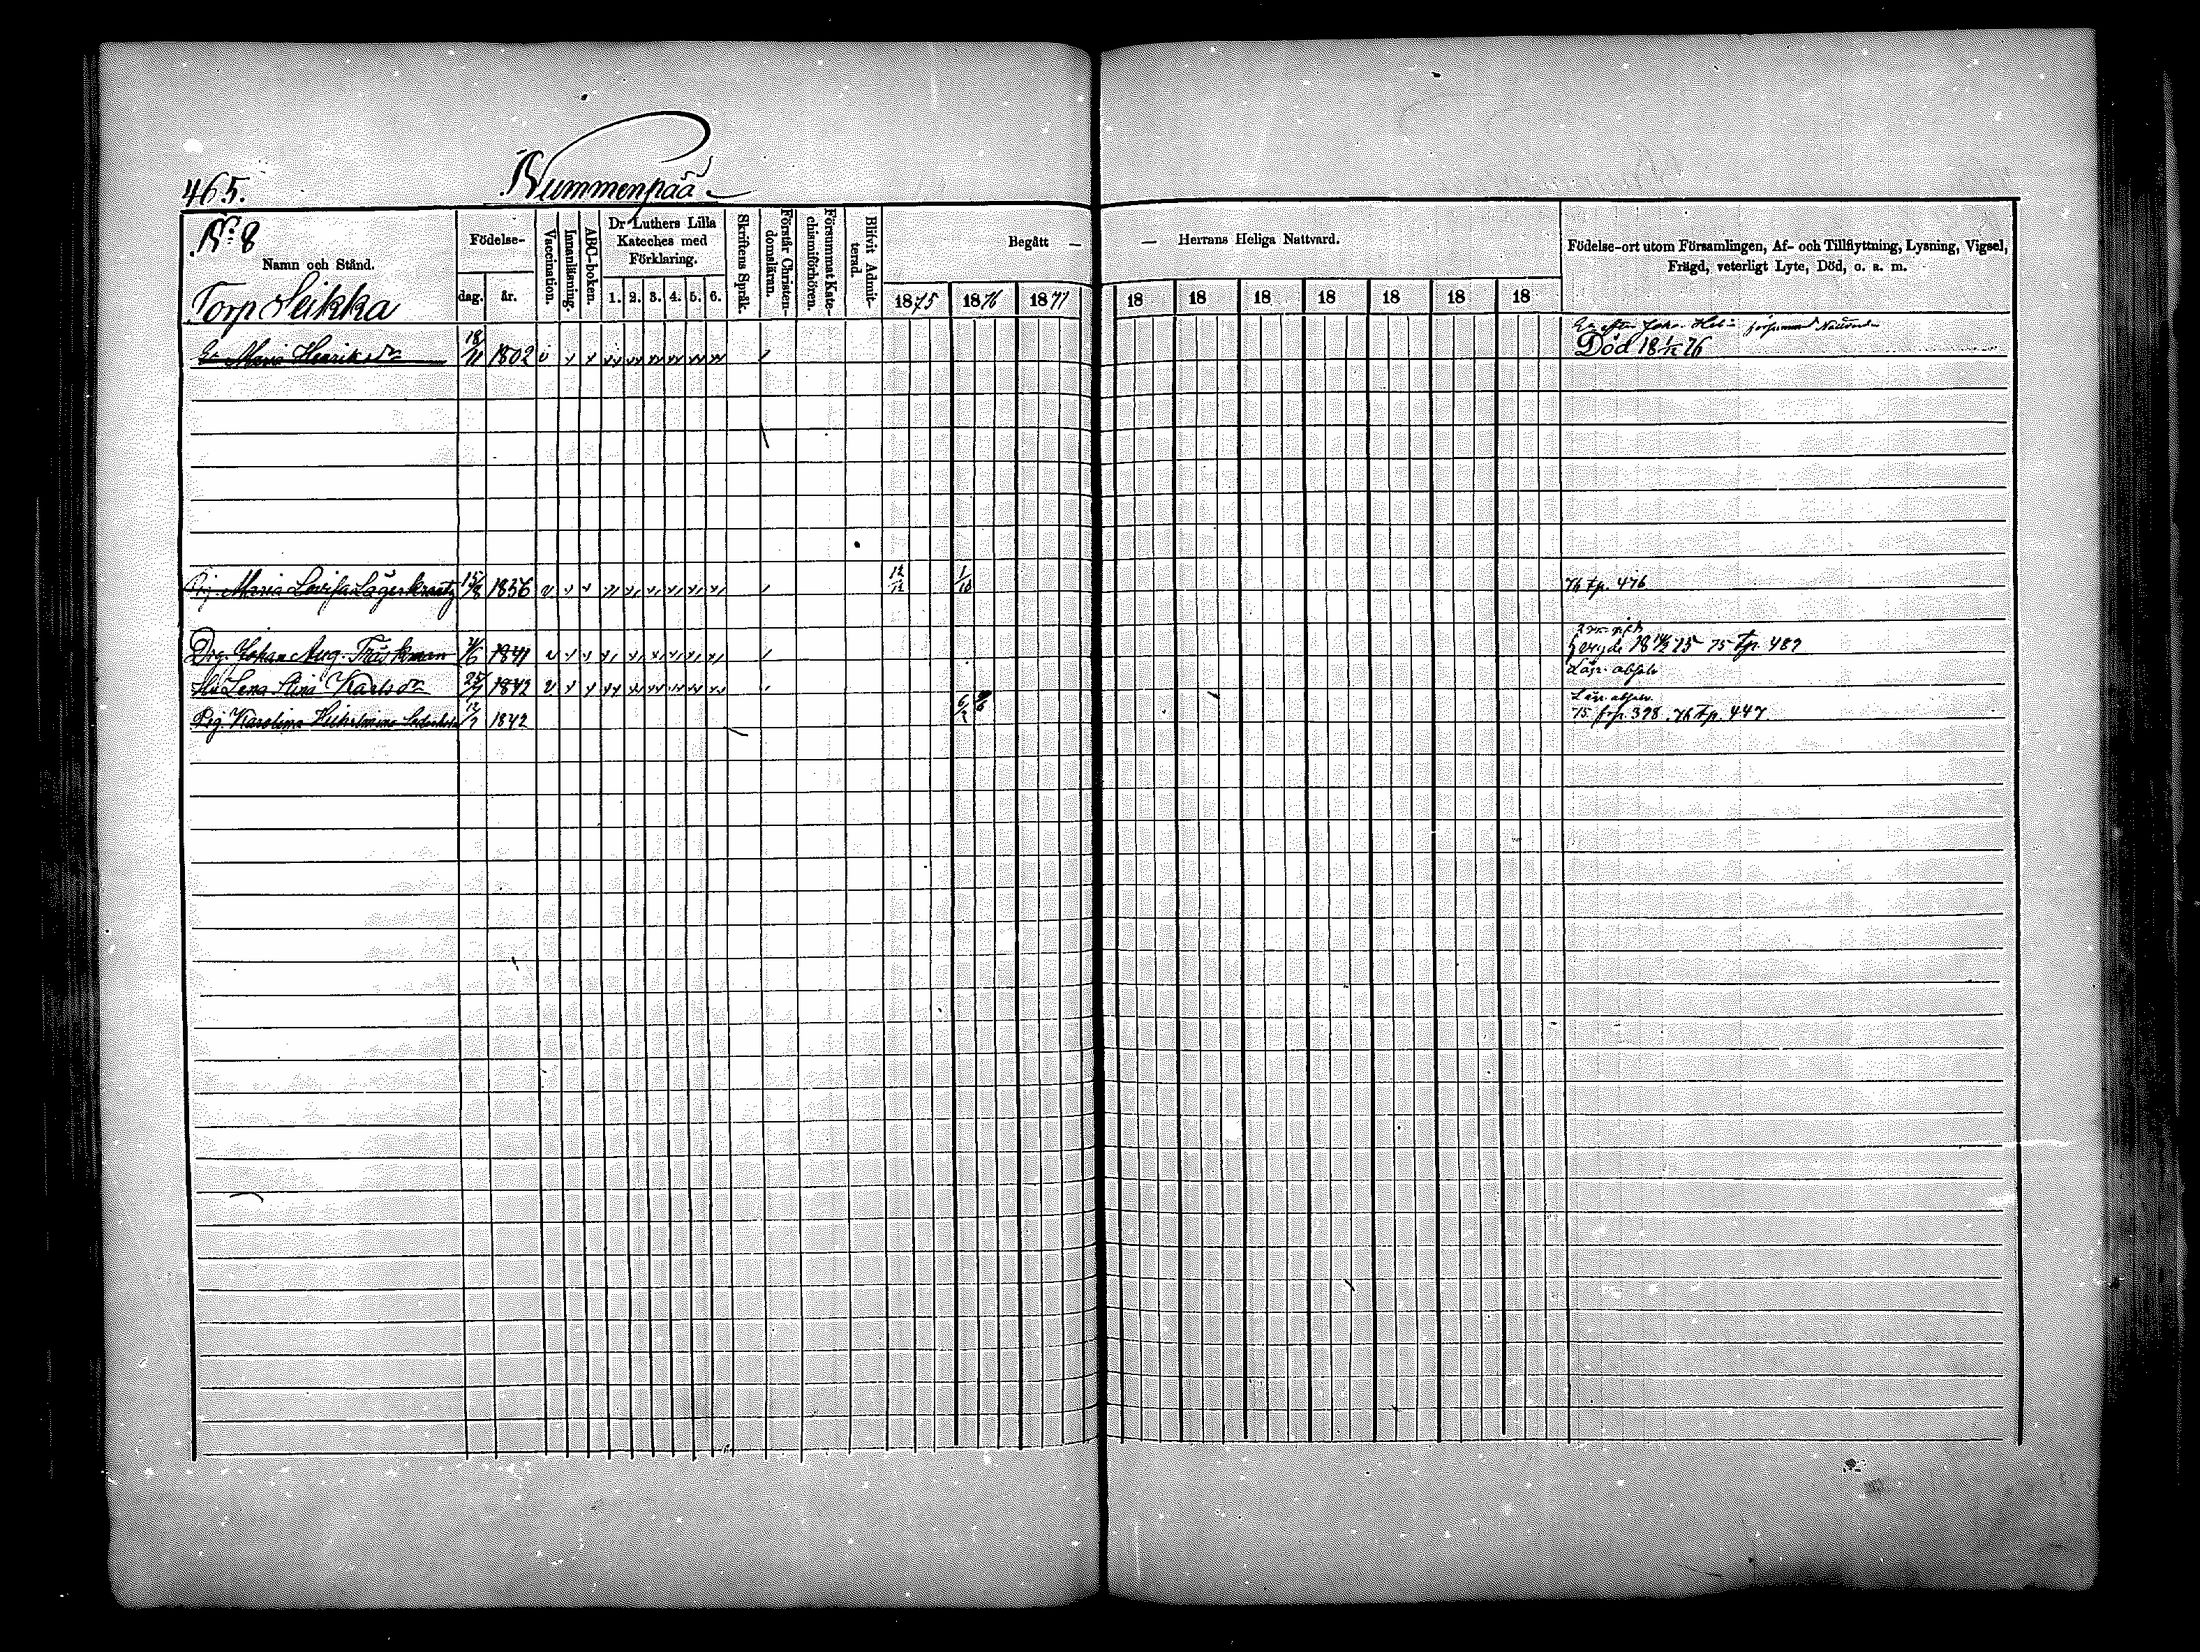 465.
Nummenpää
No 8
Namn och Stånd.
Torp Seikka
Födelse-
dag. år.
Vaccination.
Innanläsning.
ABC-boken.
Dr Luthers Lilla
Kateches med
Förklaring.
1. 2. 3. 4. 5. 6.
Skriftens Språk.
Förstår Christen-
domsläran.
Försummat Kate-
chismiförhören.
Blifvit Admit-
terad.
Begått — — Herrans Heliga Nattvard.
1875 1876 1877 18 18 18 18 18 18 18
Födelse-ort utom Församlingen, Af- och Tillflyttning, Lysning, Vigsel,
Frägd, veterligt Lyte, Död, o. s. m.
Maria Henriksdr 18/11 1802 Död 18 1/12 76
Pig. Maria Lovisa Lagerkrantz 1856 12/12 1/10 76 tp. 476
Drg. Johan Aug. Träskman 1841 75 tp. 487
Hu Lena Stina Karlsdr 1842
Pig. Karolina Wilhelmina 12/7 1842 75 frp. 398. 76 tp. 447